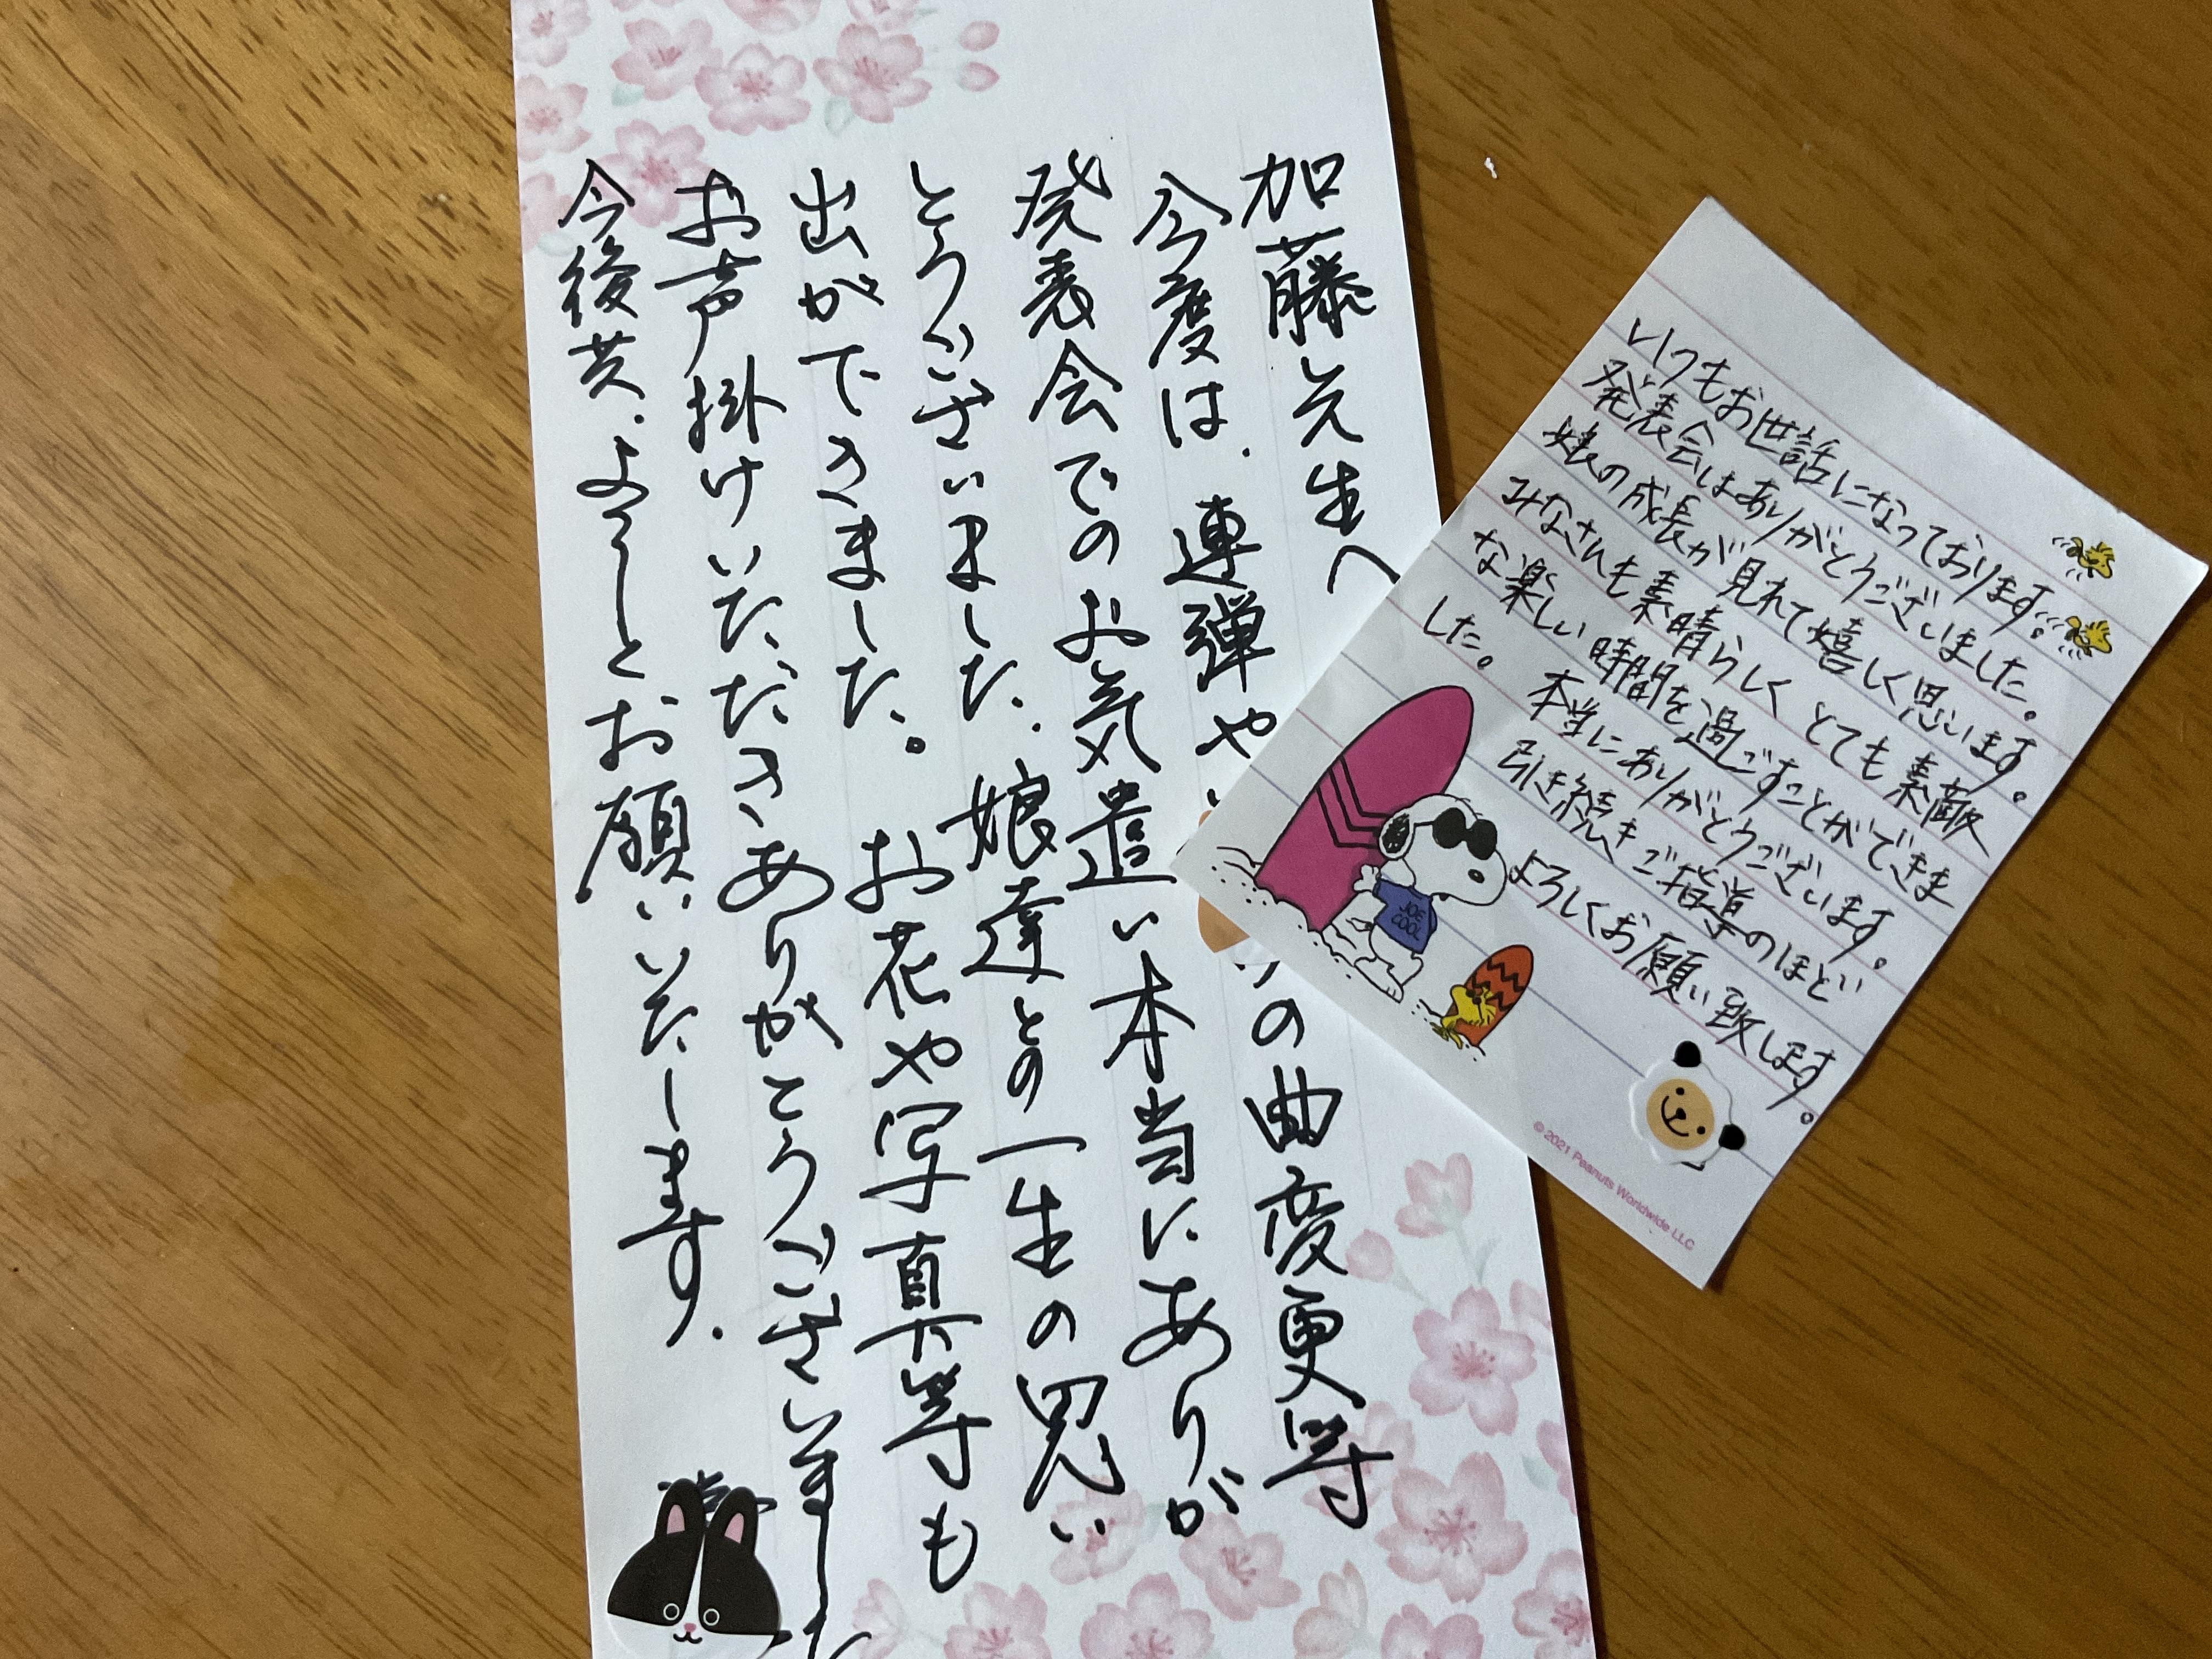 加藤先生へ
今度は、連弾や の曲変更等
発表会でのお気遣い本当にありが
とうございました。娘達との一生の思い
出ができました。お花や写真等も
お声掛けいただきありがとうございました
今後共、よろしくお願いいたします。
いつもお世話になっております。
発表会はありがとうございました。
娘の成長が見れて嬉しく思います。
みなさんも素晴らしくとても素敵
な楽しい時間を過ごすことができま
した。 本当にありがとうございます。
引き続きご指導のほど
よろしくお願い致します。
JOE
COOL
© 2021 Peanuts Worldwide LLC